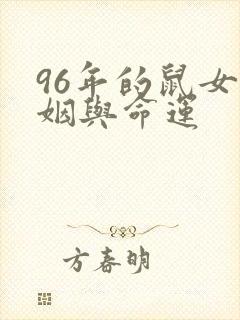 96年的鼠女
姻與命運
方春明